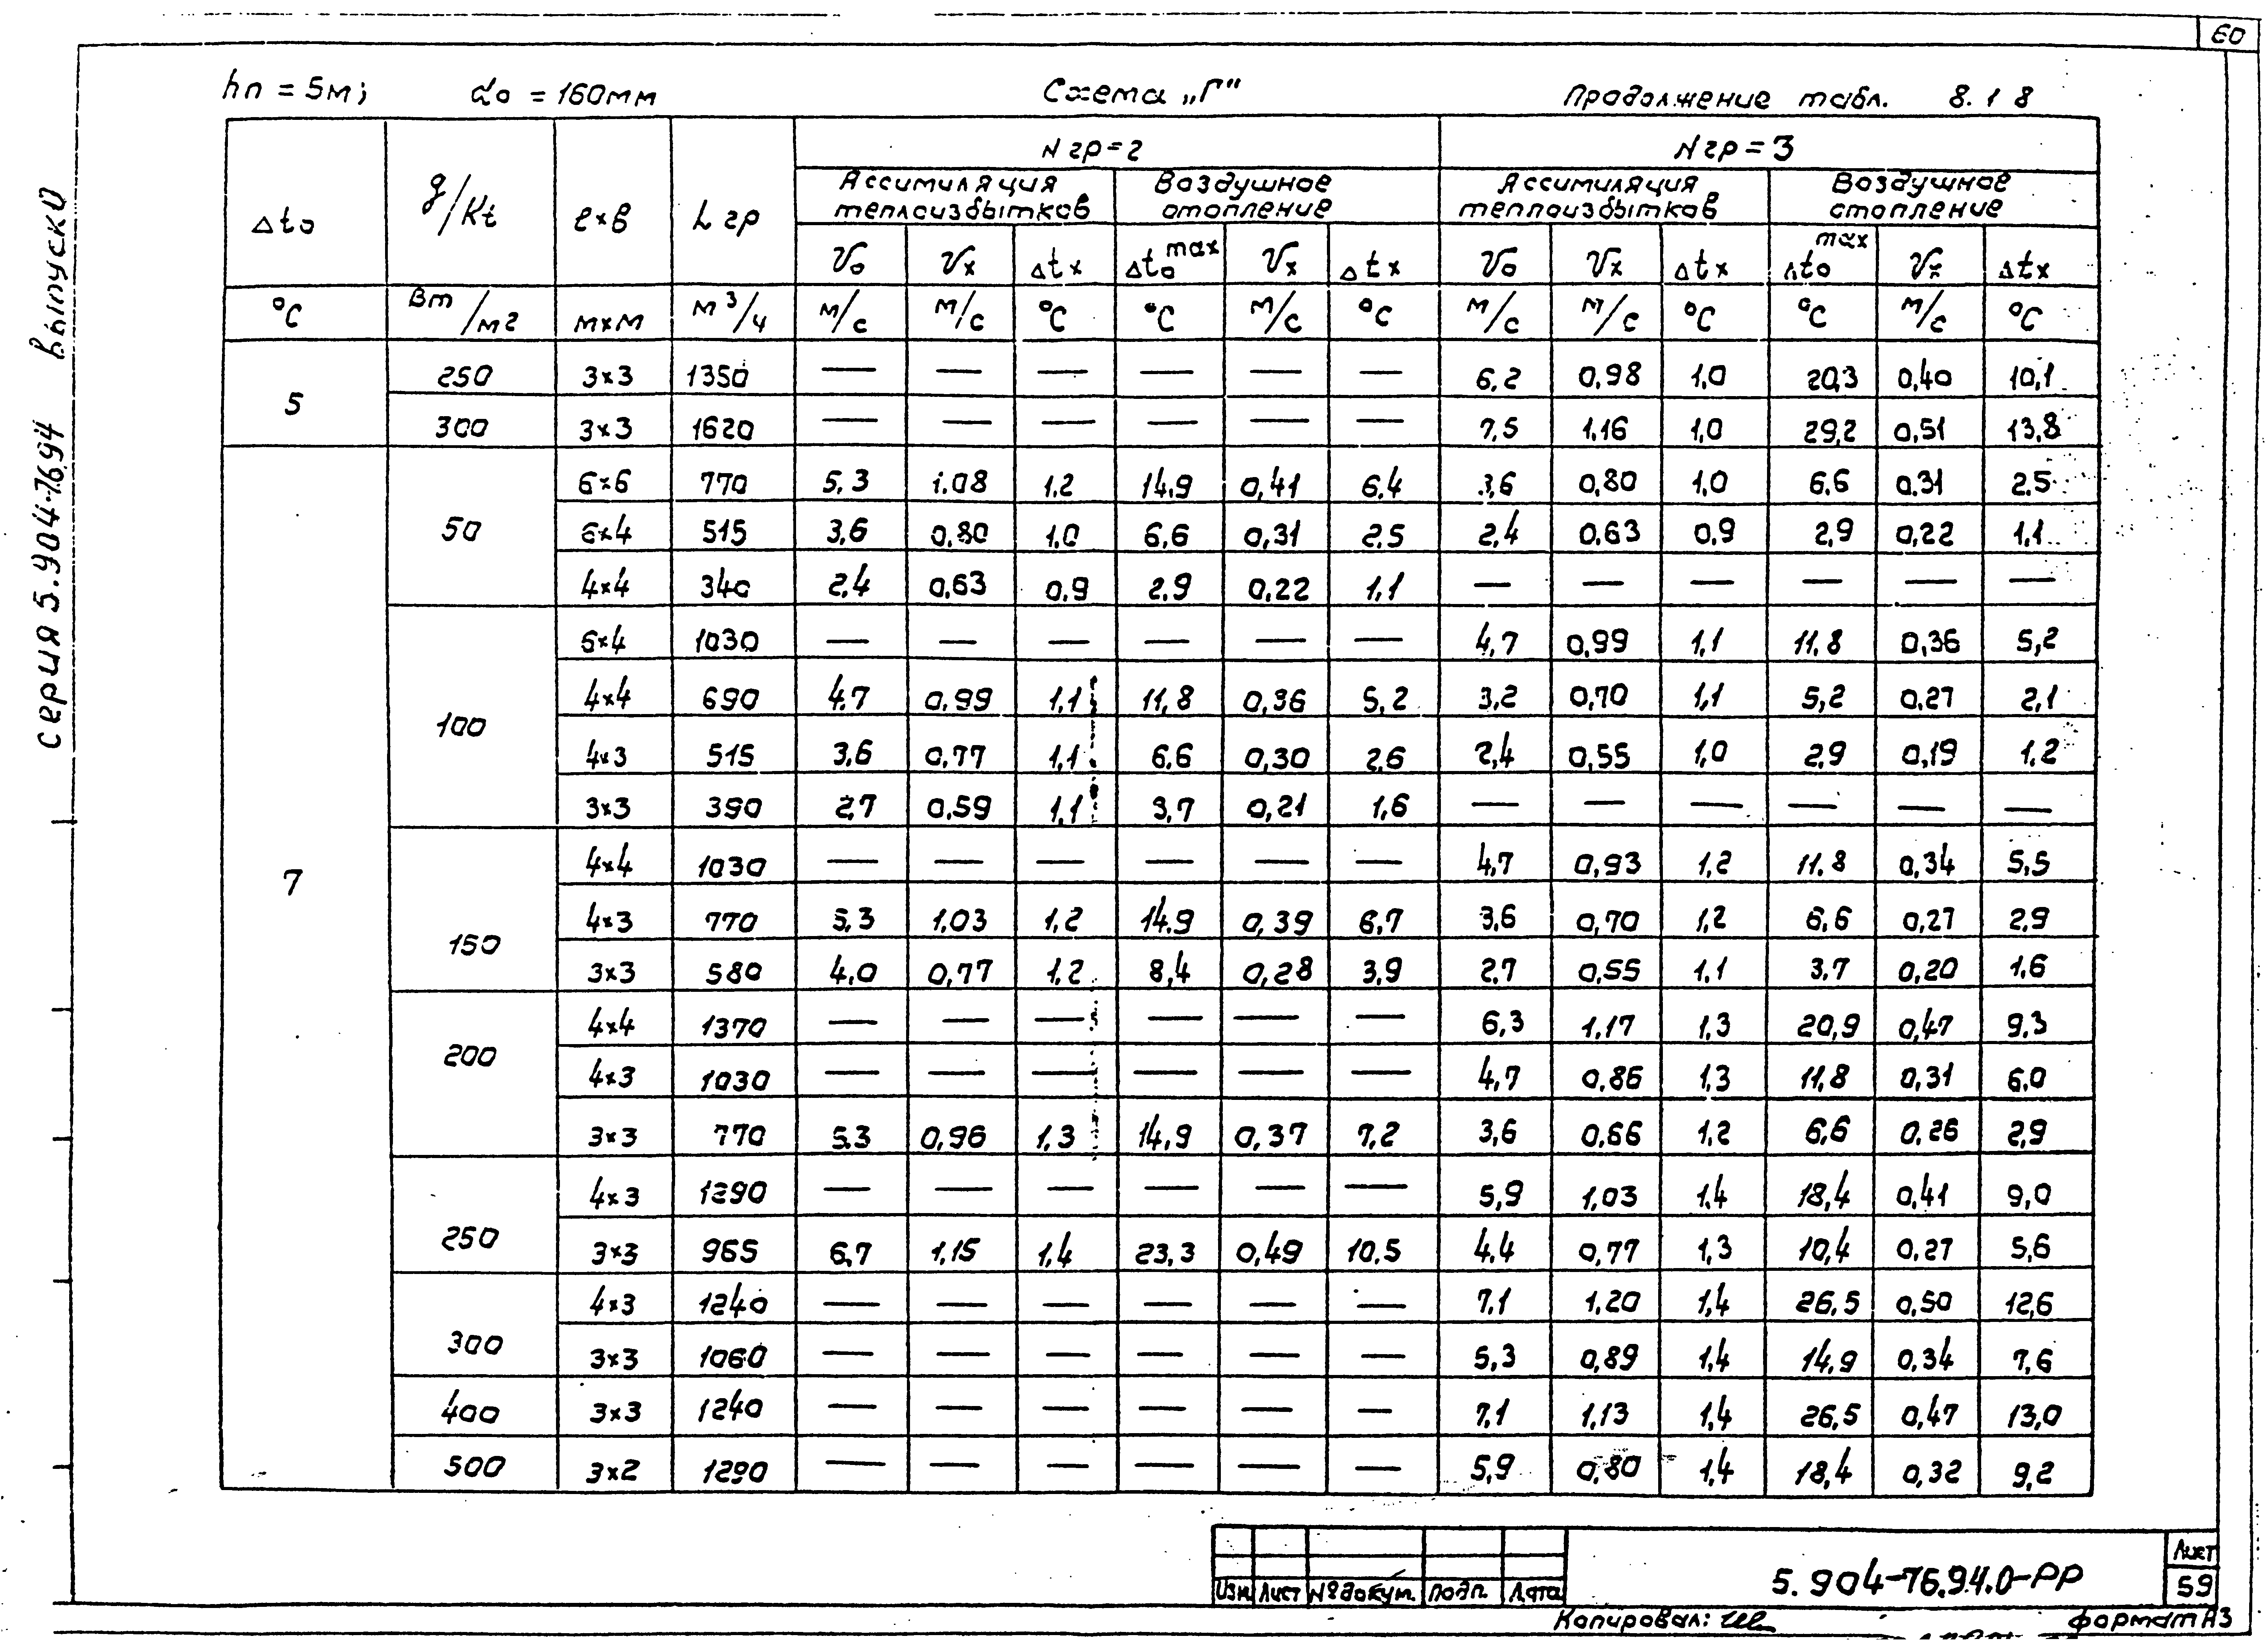 60
hп = 5м; do = 160мм Схема „Г" Продолжение табл. 8.18
Δto q/Kt ℓ×в Lгр Nгр=2 Nгр=3
Ассимиляция теплоизбытков Воздушное отопление Ассимиляция теплоизбытков Воздушное отопление
Vo Vx Δtx Δto max Vx Δtx Vo Vx Δtx Δto max Vx Δtx
°С Вт/м2 м×м м3/ч м/с м/с °С °С м/с °С м/с м/с °С °С м/с °С
5 250 3×3 1350 — — — — — — 6,2 0,98 1,0 20,3 0,40 10,1
300 3×3 1620 — — — — — — 7,5 1,16 1,0 29,2 0,51 13,8
7 50 6×6 770 5,3 1,08 1,2 14,9 0,41 6,4 3,6 0,80 1,0 6,6 0,31 2,5
6×4 515 3,6 0,80 1,0 6,6 0,31 2,5 2,4 0,63 0,9 2,9 0,22 1,1
4×4 340 2,4 0,63 0,9 2,9 0,22 1,1 — — — — — —
100 6×4 1030 — — — — — — 4,7 0,99 1,1 11,8 0,36 5,2
4×4 690 4,7 0,99 1,1 11,8 0,36 5,2 3,2 0,70 1,1 5,2 0,27 2,1
4×3 515 3,6 0,77 1,1 6,6 0,30 2,6 2,4 0,55 1,0 2,9 0,19 1,2
3×3 390 2,7 0,59 1,1 3,7 0,21 1,6 — — — — — —
150 4×4 1030 — — — — — — 4,7 0,93 1,2 11,8 0,34 5,5
4×3 770 5,3 1,03 1,2 14,9 0,39 6,7 3,6 0,70 1,2 6,6 0,27 2,9
3×3 580 4,0 0,77 1,2 8,4 0,28 3,9 2,7 0,55 1,1 3,7 0,20 1,6
200 4×4 1370 — — — — — — 6,3 1,17 1,3 20,9 0,47 9,3
4×3 1030 — — — — — — 4,7 0,86 1,3 11,8 0,31 6,0
3×3 770 5,3 0,96 1,3 14,9 0,37 7,2 3,6 0,66 1,2 6,6 0,26 2,9
250 4×3 1290 — — — — — — 5,9 1,03 1,4 18,4 0,41 9,0
3×3 965 6,7 1,15 1,4 23,3 0,49 10,5 4,4 0,77 1,3 10,4 0,27 5,6
300 4×3 1240 — — — — — — 7,1 1,20 1,4 26,5 0,50 12,6
3×3 1060 — — — — — — 5,3 0,89 1,4 14,9 0,34 7,6
400 3×3 1240 — — — — — — 7,1 1,13 1,4 26,5 0,47 13,0
500 3×2 1290 — — — — — — 5,9 0,80 1,4 18,4 0,32 9,2
серия 5.904-76.94 выпуск 0
Изм Лист №докум. Подп. Дата
5.904-76.94.0-РР
Лист
59
Копировал:
формат А3